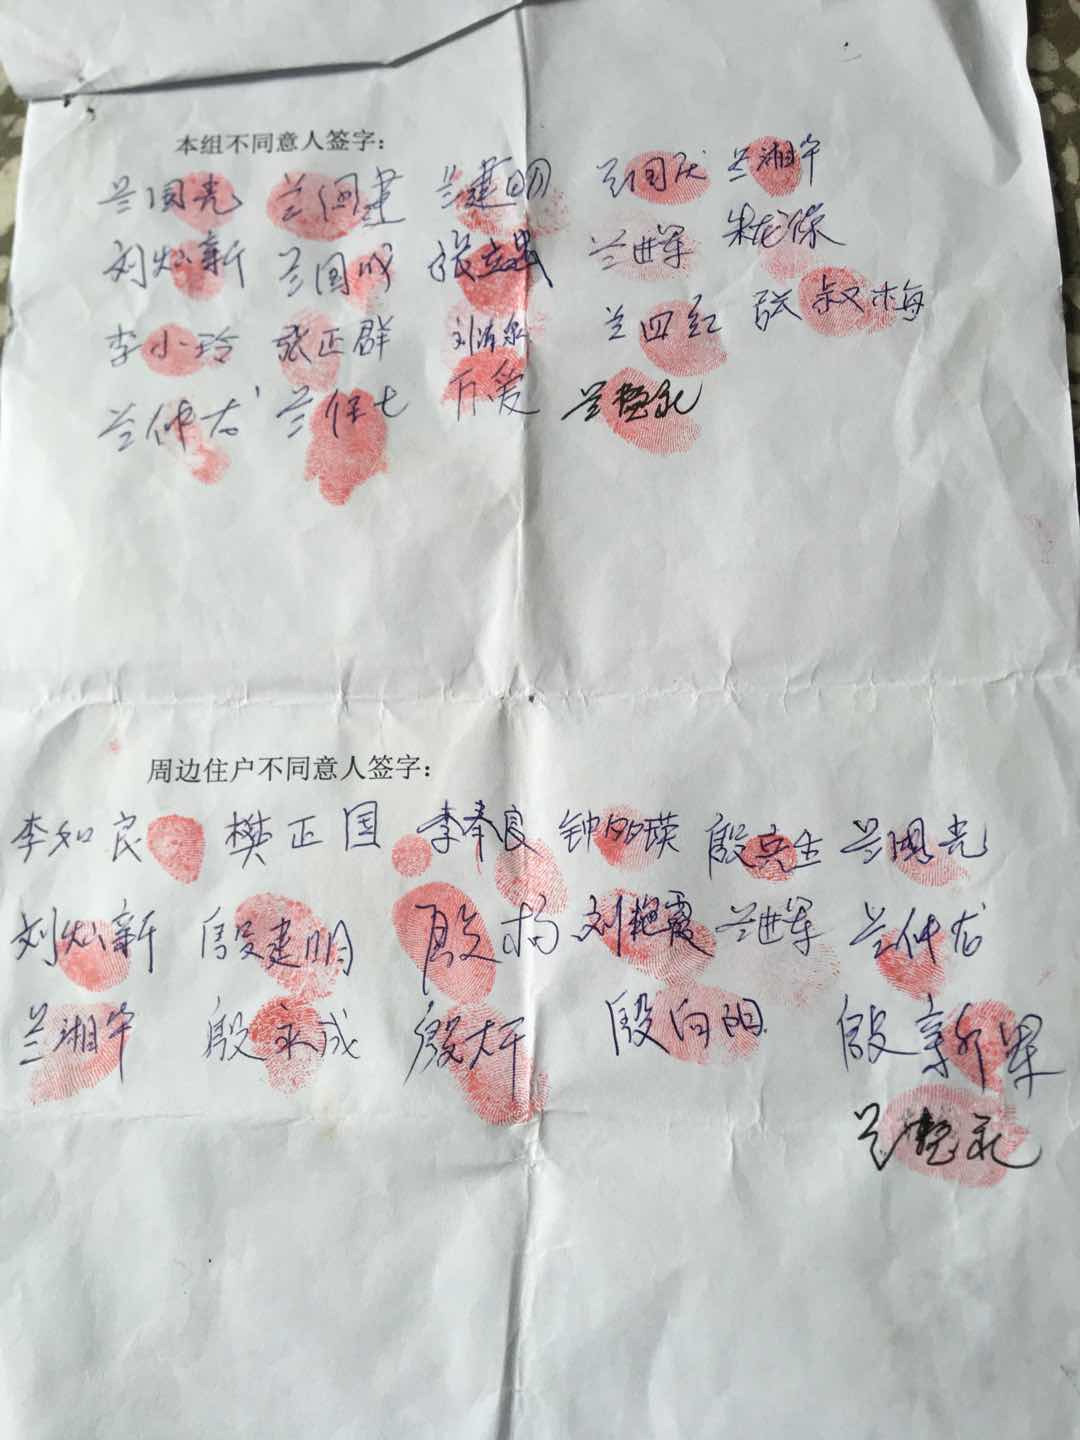 本组不同意人签字：
兰国光 兰国建 兰建明 兰国庆 兰湘华
刘灿新 兰国成 张立忠 兰世军 朱龙保
李小玲 张正群 刘清泉 兰四红 张叔梅
兰仲龙 兰任七 兰 永
周边住户不同意人签字：
李知良 樊正国 李奉良 钟 瑛 殷兵生 兰国光
刘灿新 殷建明 殷 刘艳霞 兰世军 兰仲龙
兰湘华 殷永成 殷大干 殷向阳 殷新军
兰 永